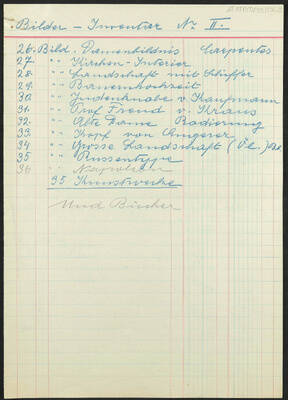 Bilder – Inventar No II.
26. Bild. Damenbildnis Carpentes
27. " Kirchen-Interier
28. " Landschaft mit Schiffer
29. " Bauernhochzeit
30. " Judenknabe v. Kaufmann
31. " Prof. Freud v. Kraus
32. " Alte Dame Radierung
33. " Kopf von Angerer
34 " Grosse Landschaft (Öl.)
35 " Russentype
36 Napoleon
35 Kunstwerke
Und Bücher